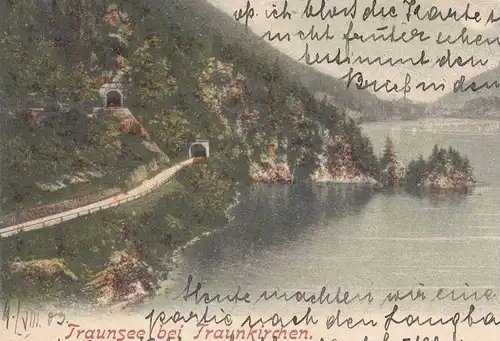 ich bloß die Karte
nicht früher
bestimmt den
Brief in den
Heute machten wir eine
4./VIII. 03.
Traunsee bei Traunkirchen.
partie nach den Langba